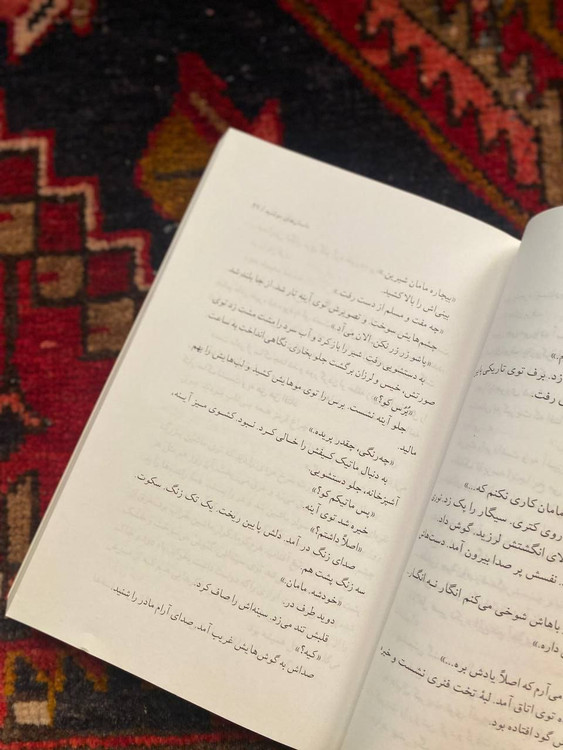 «بیچاره مامان شیرین.»
بینی‌اش را بالا کشید.
«چه مفت و مسلم از دست رفت.»
چشم‌هایش سوخت. و تصویرش توی آینه تار شد. از جا بلند شد.
«پاشو زر زر نکن، الان می‌آد.»
به دستشویی رفت. شیر را باز کرد و آب سرد را مشت مشت زد توی
صورتش. خیس و لرزان برگشت جلو بخاری. نگاهی انداخت به ساعت.
«بُرُس کو؟»
جلو آینه نشست. برس را توی موهایش کشید و لب‌هایش را بهم
مالید.
«چه رنگی، چقدر پریده.»
به دنبال ماتیک کیفش را خالی کرد. نبود. کشوی میز آینه،
آشپزخانه، جلو دستشویی.
«پس ماتیکم کو؟»
خیره شد توی آینه.
«اصلاً داشتم؟»
صدای زنگ در آمد. دلش پایین ریخت. یک تک زنگ. سکوت.
سه زنگ پشت هم.
«خودشه. مامان.»
دوید طرف در.
قلبش تند می‌زد. سینه‌اش را صاف کرد.
«کیه؟»
صداش به گوش‌هایش غریب آمد. صدای آرام مادر را شنید.
زد. برف توی تاریکی
رفت.
مامان کاری نکنم که...»
روی کتری. سیگار را پک زد.
لای انگشتش لرزید. گوش داد.
نفسش پر صدا بیرون آمد. دست‌هاش
باهاش شوخی می‌کنم انگار نه انگار.
داره.»
می‌آرم که اصلاً یادش بره...»
توی اتاق آمد. لبهٔ تخت فنری نشست و خیره
گود افتاده بود.